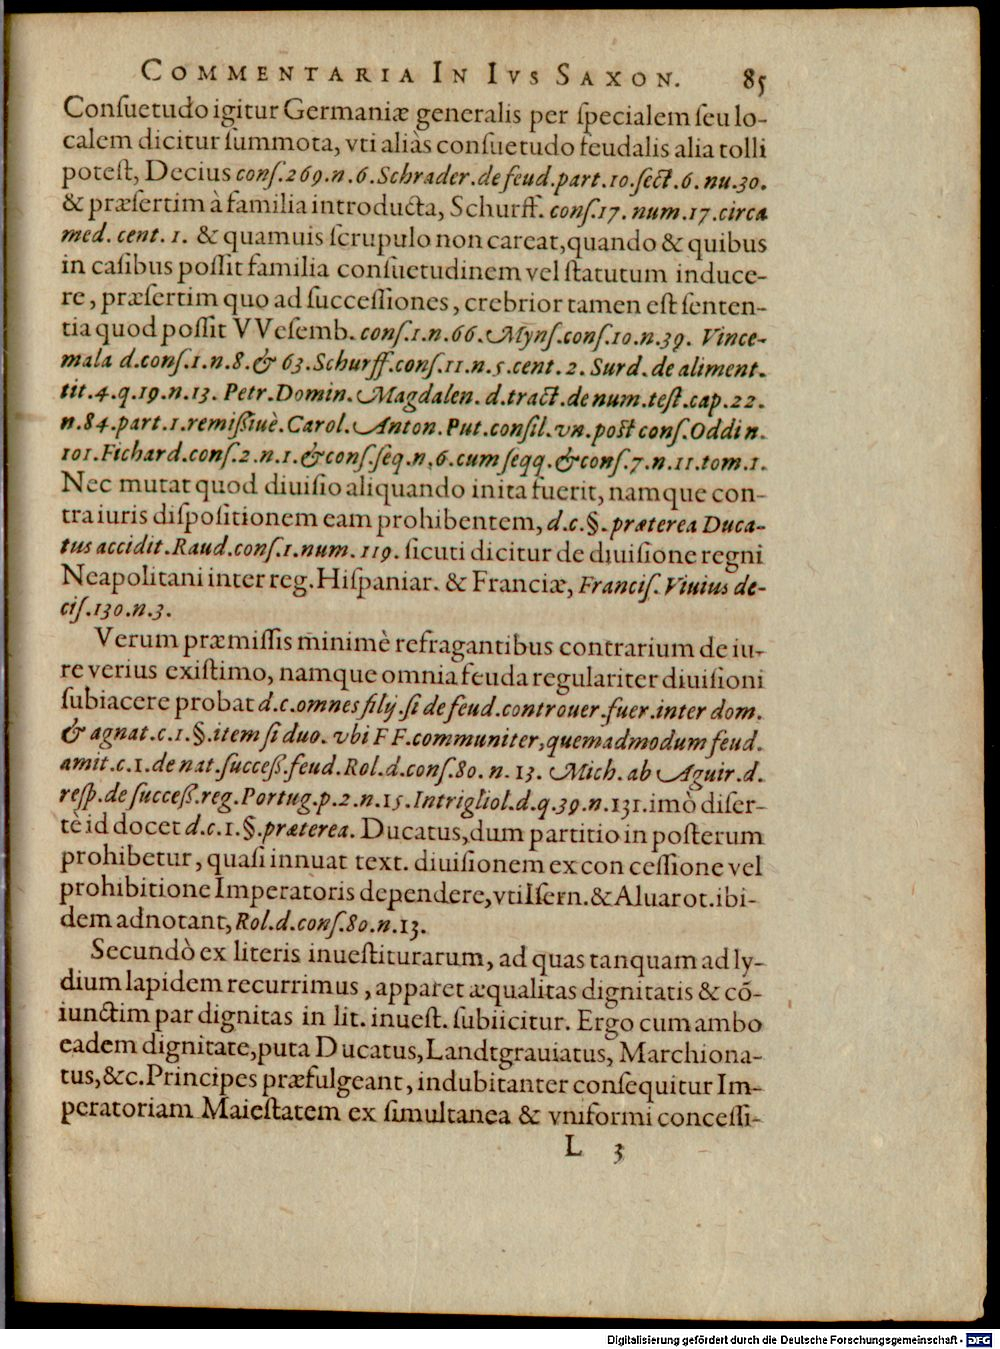 COMMENTARIA IN IVS SAXON. 85
Conſuetudo igitur Germaniæ generalis per ſpecialem ſeu lo-
calem dicitur ſummota, vti aliàs conſuetudo feudalis alia tolli
poteſt, Decius conſ. 269. n. 6. Schrader. de feud. part. 10. ſect. 6. nu. 30.
& præſertim à familia introducta, Schurff. conſ. 17. num. 17. circa
med. cent. 1. & quamuis ſcrupulo non careat, quando & quibus
in caſibus poſſit familia conſuetudinem vel ſtatutum induce-
re, præſertim quo ad ſucceſſiones, crebrior tamen eſt ſenten-
tia quod poſſit VVeſemb. conſ. 1. n. 66. Mynſ. conſ. 10. n. 39. Vince-
mala d. conſ. 1. n. 8. & 63. Schurff. conſ. 11. n. 5. cent. 2. Surd. de aliment.
tit. 4. q. 19. n. 13. Petr. Domin. Magdalen. d. tract. de num. teſt. cap. 22.
n. 84. part. 1. remißiuè. Carol. Anton. Put. conſil. vn. poſt conſ. Oddi n.
101. Fichard. conſ. 2. n. 1. & conſ. ſeq. n. 6. cum ſeqq. & conſ. 7. n. 11. tom. 1.
Nec mutat quod diuiſio aliquando inita fuerit, namque con-
tra iuris diſpoſitionem eam prohibentem, d. c. §. præterea Duca-
tus accidit. Raud. conſ. 1. num. 119. ſicuti dicitur de diuiſione regni
Neapolitani inter reg. Hiſpaniar. & Franciæ, Franciſ. Viuius de-
ciſ. 130. n. 3.
Verum præmiſſis minimè refragantibus contrarium de iu-
re verius exiſtimo, namque omnia feuda regulariter diuiſioni
ſubiacere probat d. c. omnes filij. ſi de feud. controuer. fuer. inter dom.
& agnat. c. 1. §. item ſi duo. vbi FF. communiter, quemadmodum feud.
amit. c. 1. de nat. ſucceß. feud. Rol. d. conſ. 80. n. 13. Mich. ab Aguir. d.
reſp. de ſucceß. reg. Portug. p. 2. n. 15. Intrigliol. d. q. 39. n. 131. imò diſer-
tè id docet d. c. 1. §. præterea. Ducatus, dum partitio in poſterum
prohibetur, quaſi innuat text. diuiſionem ex con ceſſione vel
prohibitione Imperatoris dependere, vti Iſern. & Aluarot. ibi-
dem adnotant, Rol. d. conſ. 80. n. 13.
Secundò ex literis inueſtiturarum, ad quas tanquam ad ly-
dium lapidem recurrimus, apparet æqualitas dignitatis & cō-
iunctim par dignitas in lit. inueſt. ſubiicitur. Ergo cum ambo
eadem dignitate, puta Ducatus, Landtgrauiatus, Marchiona-
tus, &c. Principes præfulgeant, indubitanter conſequitur Im-
peratoriam Maieſtatem ex ſimultanea & vniformi conceſſi-
L 3
Digitalisierung gefördert durch die Deutsche Forschungsgemeinschaft - DFG